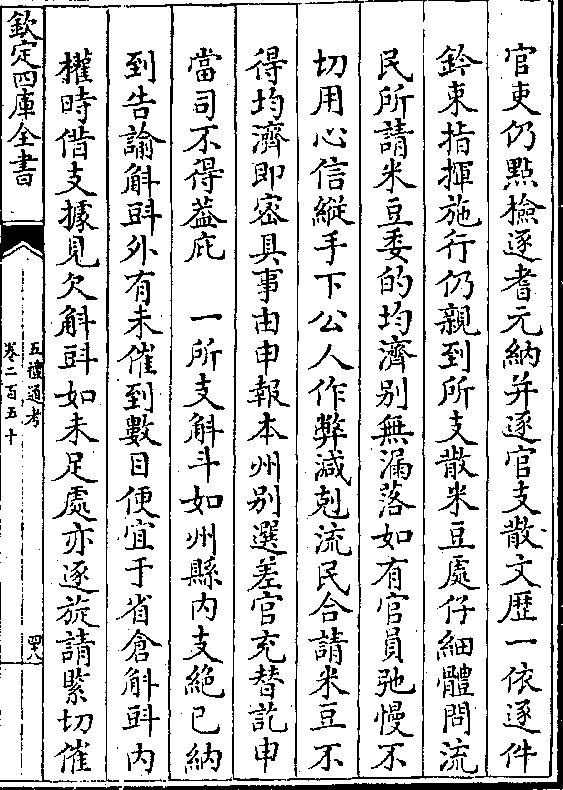 官吏仍點檢逐耆元納并逐官支散文歷一依逐件
鈐束指揮施行仍親到所支散米豆處仔細體問流
民所請米豆委的均濟别無漏落如有官員弛慢不
切用心信縱手下公人作弊減剋流民合請米豆不
得均濟即密具事由申報本州别選差官充替訖申
當司不得葢庇　一所支斛斗如州縣内支絶已納
到告諭斛㪷外有未催到數目便宜于省倉斛㪷内
權時借支據見欠斛㪷如未足處亦逐旋請緊切催
欽定四庫全書
五禮通考
卷二百五十
四八